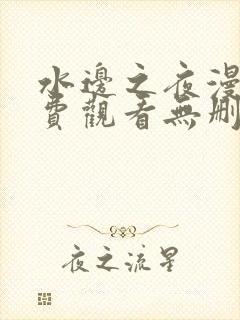 水邊之夜漫
費觀看無刪
夜之流星